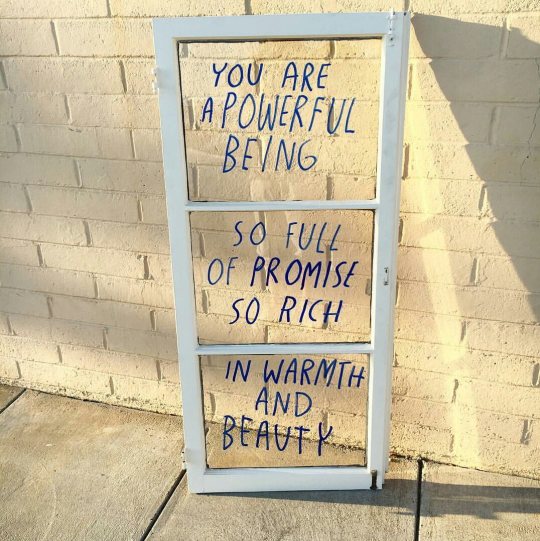 YOU ARE
A POWERFUL
BEING
SO FULL
OF PROMISE
SO RICH
IN WARMTH
AND
BEAUTY